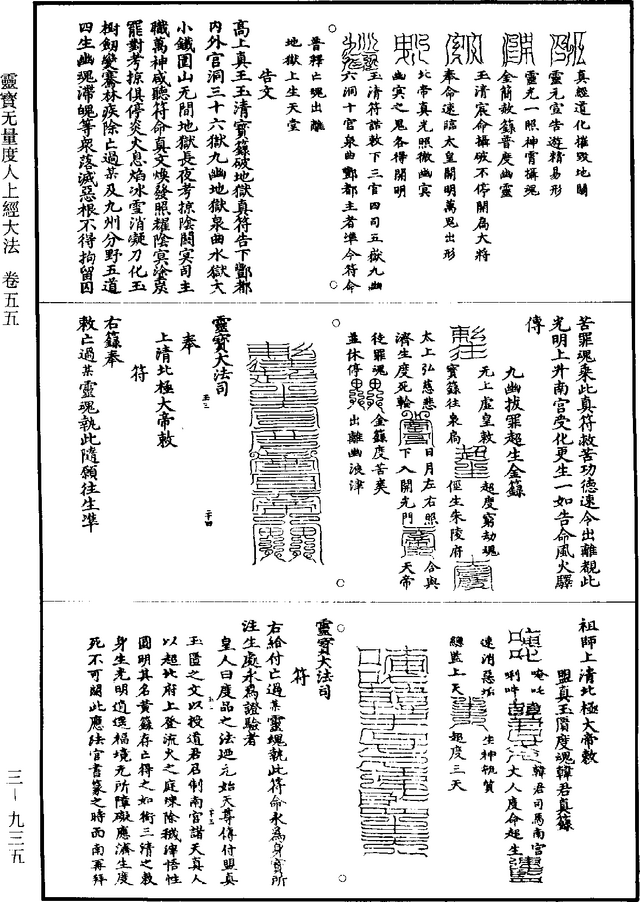 真經道化摧毀地關
靈元宣告遊精易形
靈光一照神霄攝魂
金簡赦籙普度幽靈
玉清宸命攝破不停開扃大將
奉命速臨太皇開明萬鬼出形
北帝真光照徹幽冥
幽冥之鬼各得開明
玉清符誥敕下三官四司五獄九幽
六洞十宮泉曲酆都主者準今符命
普釋亡魂出離
地獄上生天堂
告文
高上真王玉清寶籙破地獄真符告下酆都
内外官洞三十六獄九幽地獄泉曲水獄大
小鐵圍山无間地獄長夜考掠陰關冥司主
職萬神咸聽符命真文煥發照耀陰冥塗炭
罷對考掠俱停炎火息焰冰雪消凝刀化玉
樹劒變騫林疾除亡過某及九州分野五道
四生幽魂滯魄等衆落滅惡根不得拘留囚
苦罪魂乘此真符救苦功德速令出離覩此
光明上升南宮受化更生一如告命風火驛
傳
九幽拔罪超生金籙
无上虛皇敕 超度窮劫魂
寶籙往泉扃 徑生朱陵府
太上弘慈悲 日月左右照 合與
濟生度死輪 下入開光門 天帝
徒罪魂 金籙度苦爽
並休停 出離幽淚津
靈寶大法司
奉
上清北極大帝敕
符
右籙奉
敕亡過某靈魂執此隨願往生準
祖師上清北極大帝敕
盟真玉匱度魂韓君真籙
唵吒 韓君司馬南宮
唎吽 大人度命超生
速消惡垢 生神秖質
總監上天 超度三天
靈寶大法司
符
右給付亡過某靈魂執此符命永為身寶所
注生處永為證驗者
皇人曰度品之法迺元始天尊傳付盟真
玉匱之文以授道君召制南宮諸天真人
以超北府上登流火之庭埭除穢滓悟性
圓明其名黄籙存亡得之如銜三清之敕
身生光明逍遥福境无所障礙應濟生度
死不可闕此應法官書篆之時西南再拜
靈寶无量度人上經大法 卷五五
三—九三五